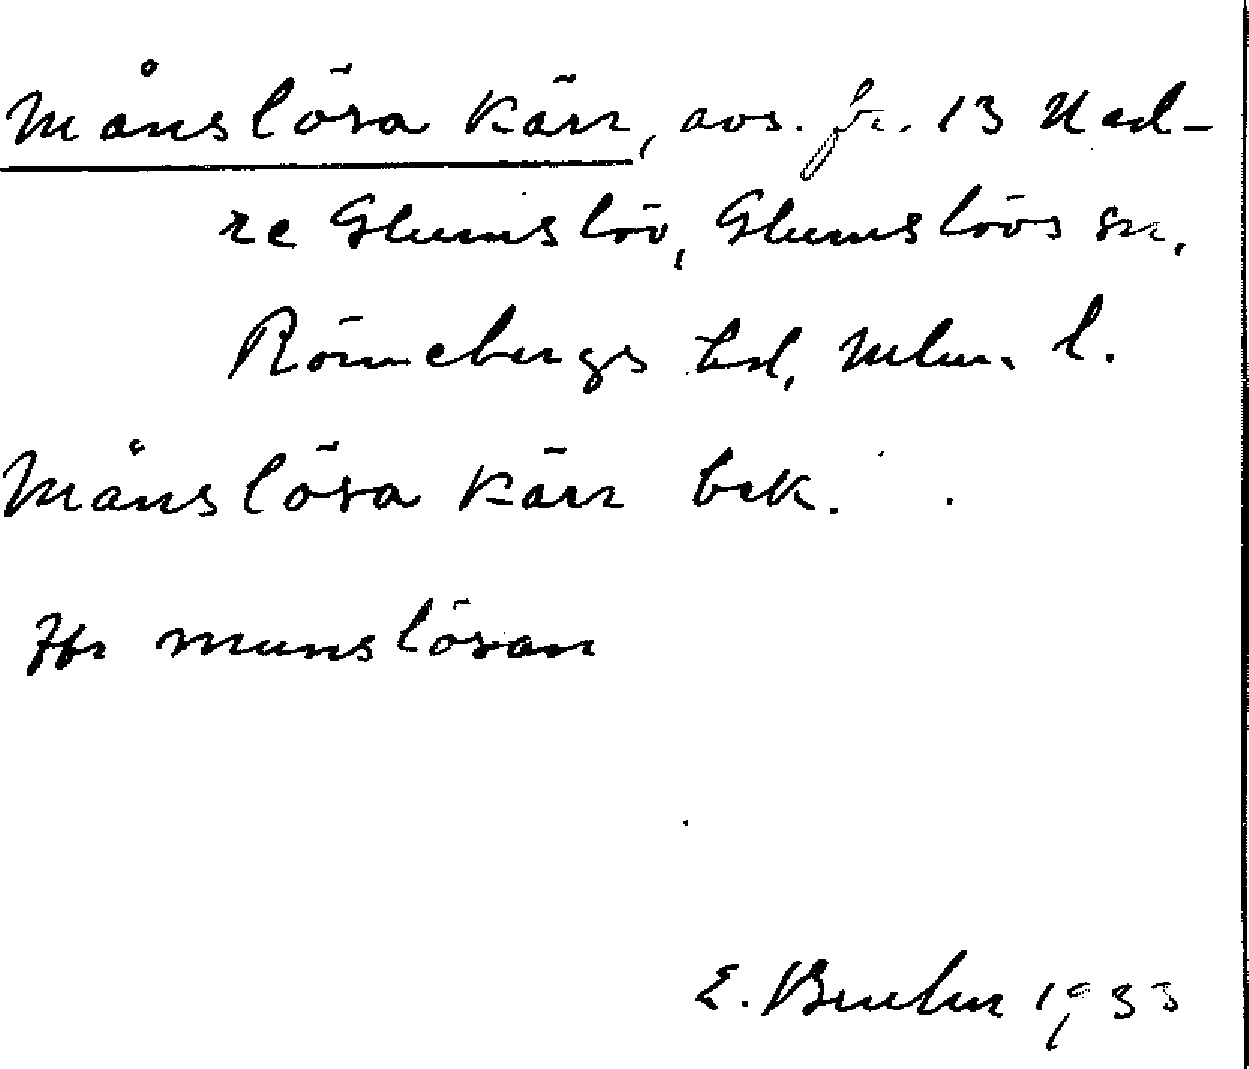 Månslösa Kärr, avs. fr. 13 Ned-
re Glumslöv, Glumslövs sn,
Rönnebergs hd, Mlm. l.
Månslösa Kärr bek.
Jfr Munslösan
E. Bruhn 1933